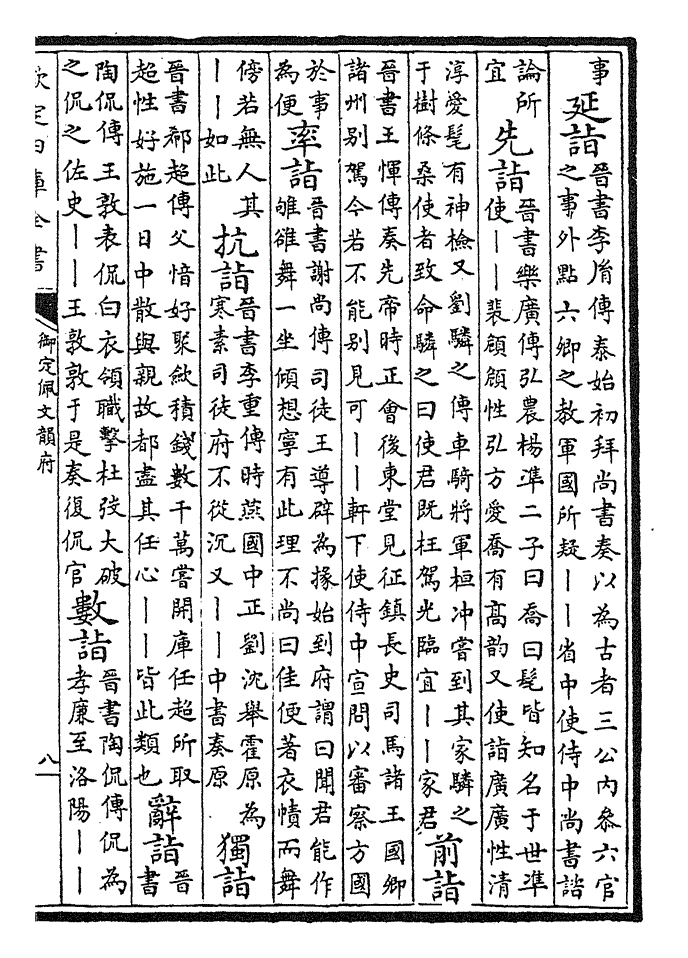 事
延詣
晉書李胤傳泰始初拜尚書奏以為古者三公內參六官
之事外點六卿之教軍國所疑——省中使侍中尚書諮
論所
宜
先詣
晉書樂廣傳弘農楊準二子曰喬曰髦皆知名于世準
使——裴頠頠性弘方愛喬有髙韵又使詣廣廣性清
淳愛髦有神檢又劉驎之傳車騎將軍桓冲嘗到其家驎之
于樹條桑使者致命驎之曰使君既枉駕光臨宜——家君
前詣
晉書王惲傳奏先帝時正會後東堂見征鎮長史司馬諸王國卿
諸州别駕今若不能别見可——軒下使侍中宣問以審察方國
於事
為便
率詣
晉書謝尚傳司徒王導辟為掾始到府謂曰聞君能作
舞一坐傾想寧有此理不尚曰佳便著衣幘而舞
傍若無人其
——如此
抗詣
晉書李重傳時燕國中正劉沈舉霍原為
寒素司徒府不從沉又——中書奏原
獨詣
晉書郗超傳父愔好聚斂積錢數千萬嘗開庫任超所取
超性好施一日中散與親故都盡其任心——皆此類也
辭詣
晉
書
陶侃傳王敦表侃白衣領職擊杜弢大破
之侃之佐史——王敦敦于是奏復侃官
數詣
晉書陶侃傳侃為
孝廉至洛陽——
欽定四庫全書
御定佩文韻府
八